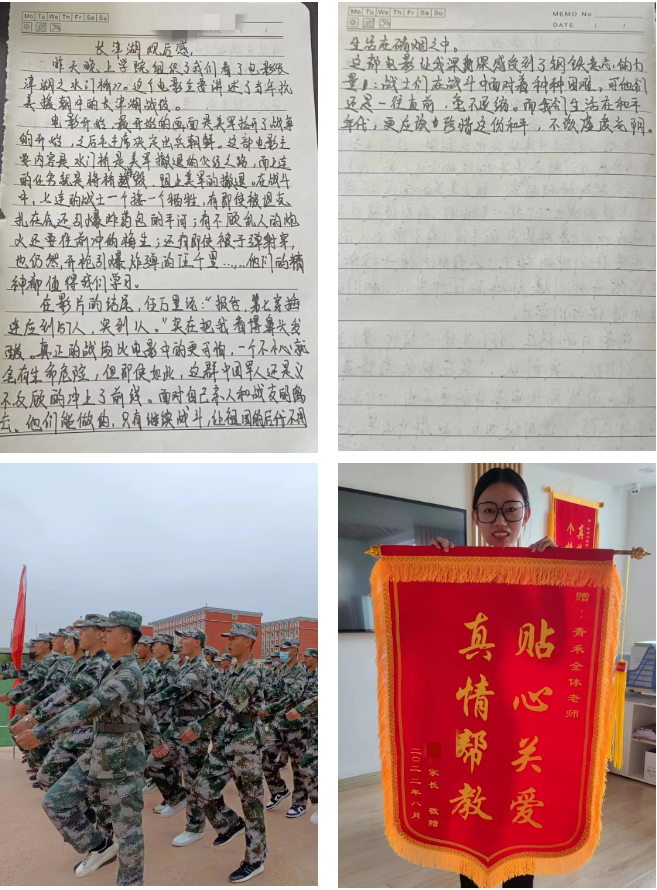 Mo Tu We Th Fr Sa Su
长津湖观后感
昨天晚上学院组织了我们看了电影长
津湖之水门桥。这个电影主要讲述了当年抗
美援朝中的长津湖战役。
电影开始,最开始的画面是美军拉开了战争
的开始,之后毛主席决定出兵朝鲜。这部电影主
要内容是水门桥是美军撤退的必经之路,而七连
的任务就是将桥炸毁,阻止美军的撤退。在战斗
中,七连的战士一个接一个牺牲,有即使被
扎在底还引爆炸药包的平河;有不顾敌人的炮
火还要往前冲的梅生;还有即使被子弹射穿,
也仍然开枪引爆炸弹的伍千里……他们的精
神都值得我们学习。
在影片的结尾,伍万里说:“报告,第七穿插
连应到157人,实到1人。”实在把我看得鼻头发
酸。真正的战场比电影中的更可怕,一个不小心就
会有生命危险,但即使如此,这群中国军人还是义
不反顾的冲上了前线。面对自己亲人和战友的离
去,他们能做的,只有继续战斗,让祖国的后代不用
Mo Tu We Th Fr Sa Su
MEMO No
DATE / /
生活在硝烟之中。
这部电影让我深深感受到了钢铁意志的力
量:战士们在战斗中面对着种种困难,可他们
还是一往直前,毫不退缩。而我们生活在和平
年代,更应该珍惜这份和平,不该虚度光阴。
赠:青禾全体老师
贴心关爱
真情帮教
家长 敬赠
二〇二二年八月